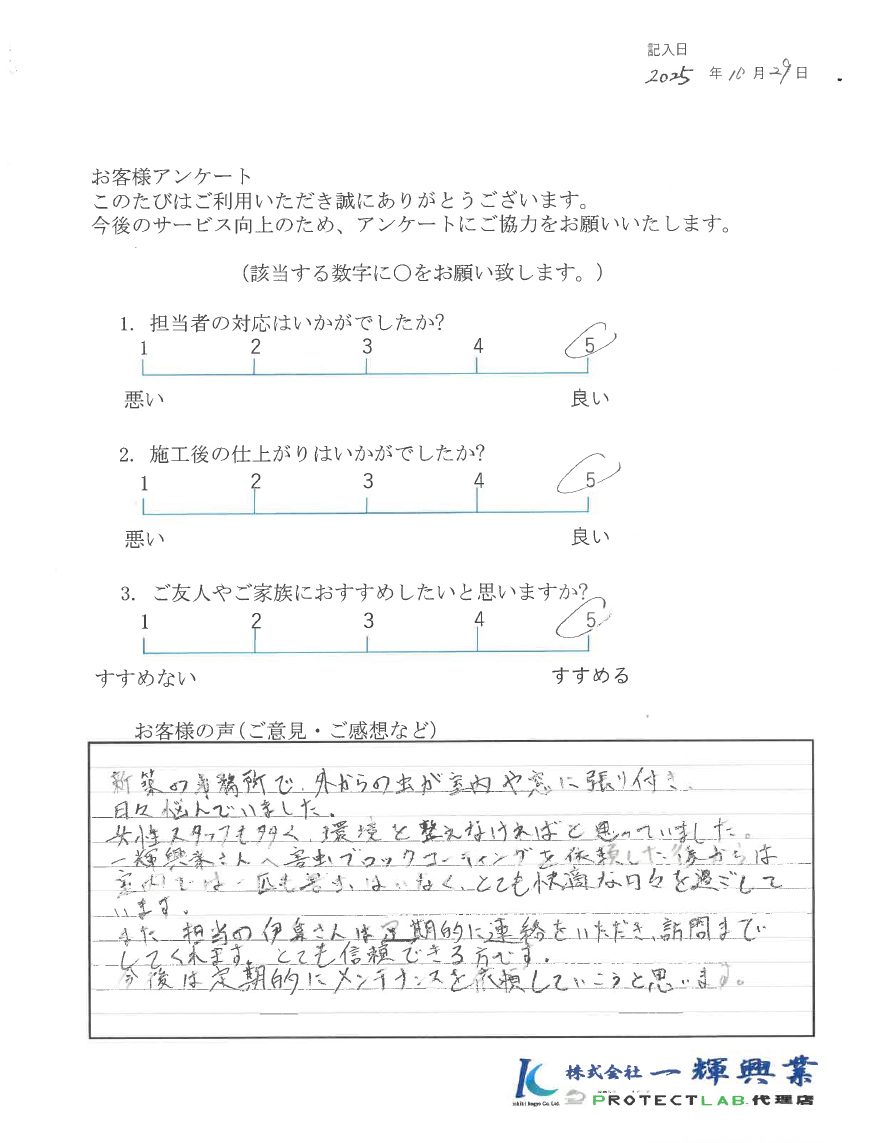 記入日
2025 年 10 月 29 日
お客様アンケート
このたびはご利用いただき誠にありがとうございます。
今後のサービス向上のため、アンケートにご協力をお願いいたします。
(該当する数字に○をお願い致します。)
1. 担当者の対応はいかがでしたか?
1 2 3 4 5
悪い 良い
2. 施工後の仕上がりはいかがでしたか?
1 2 3 4 5
悪い 良い
3. ご友人やご家族におすすめしたいと思いますか?
1 2 3 4 5
すすめない すすめる
お客様の声(ご意見・ご感想など)
新築の事務所で、外からの虫が室内や窓に張り付き、
日々悩んでいました。
女性スタッフも多く、環境を整えなければと思っていました。
一輝興業さんへ害虫ブロックコーティングを依頼した後からは
室内では一匹も害虫はいなく、とても快適な日々を過ごして
います。
また、担当の さんは定期的に連絡をいただき、訪問まで
してくれます。とても信頼できる方です。
今後は定期的にメンテナンスを依頼していこうと思います。
株式会社 一輝興業
Ichiki Kogyo Co. Ltd. PROTECTLAB 代理店